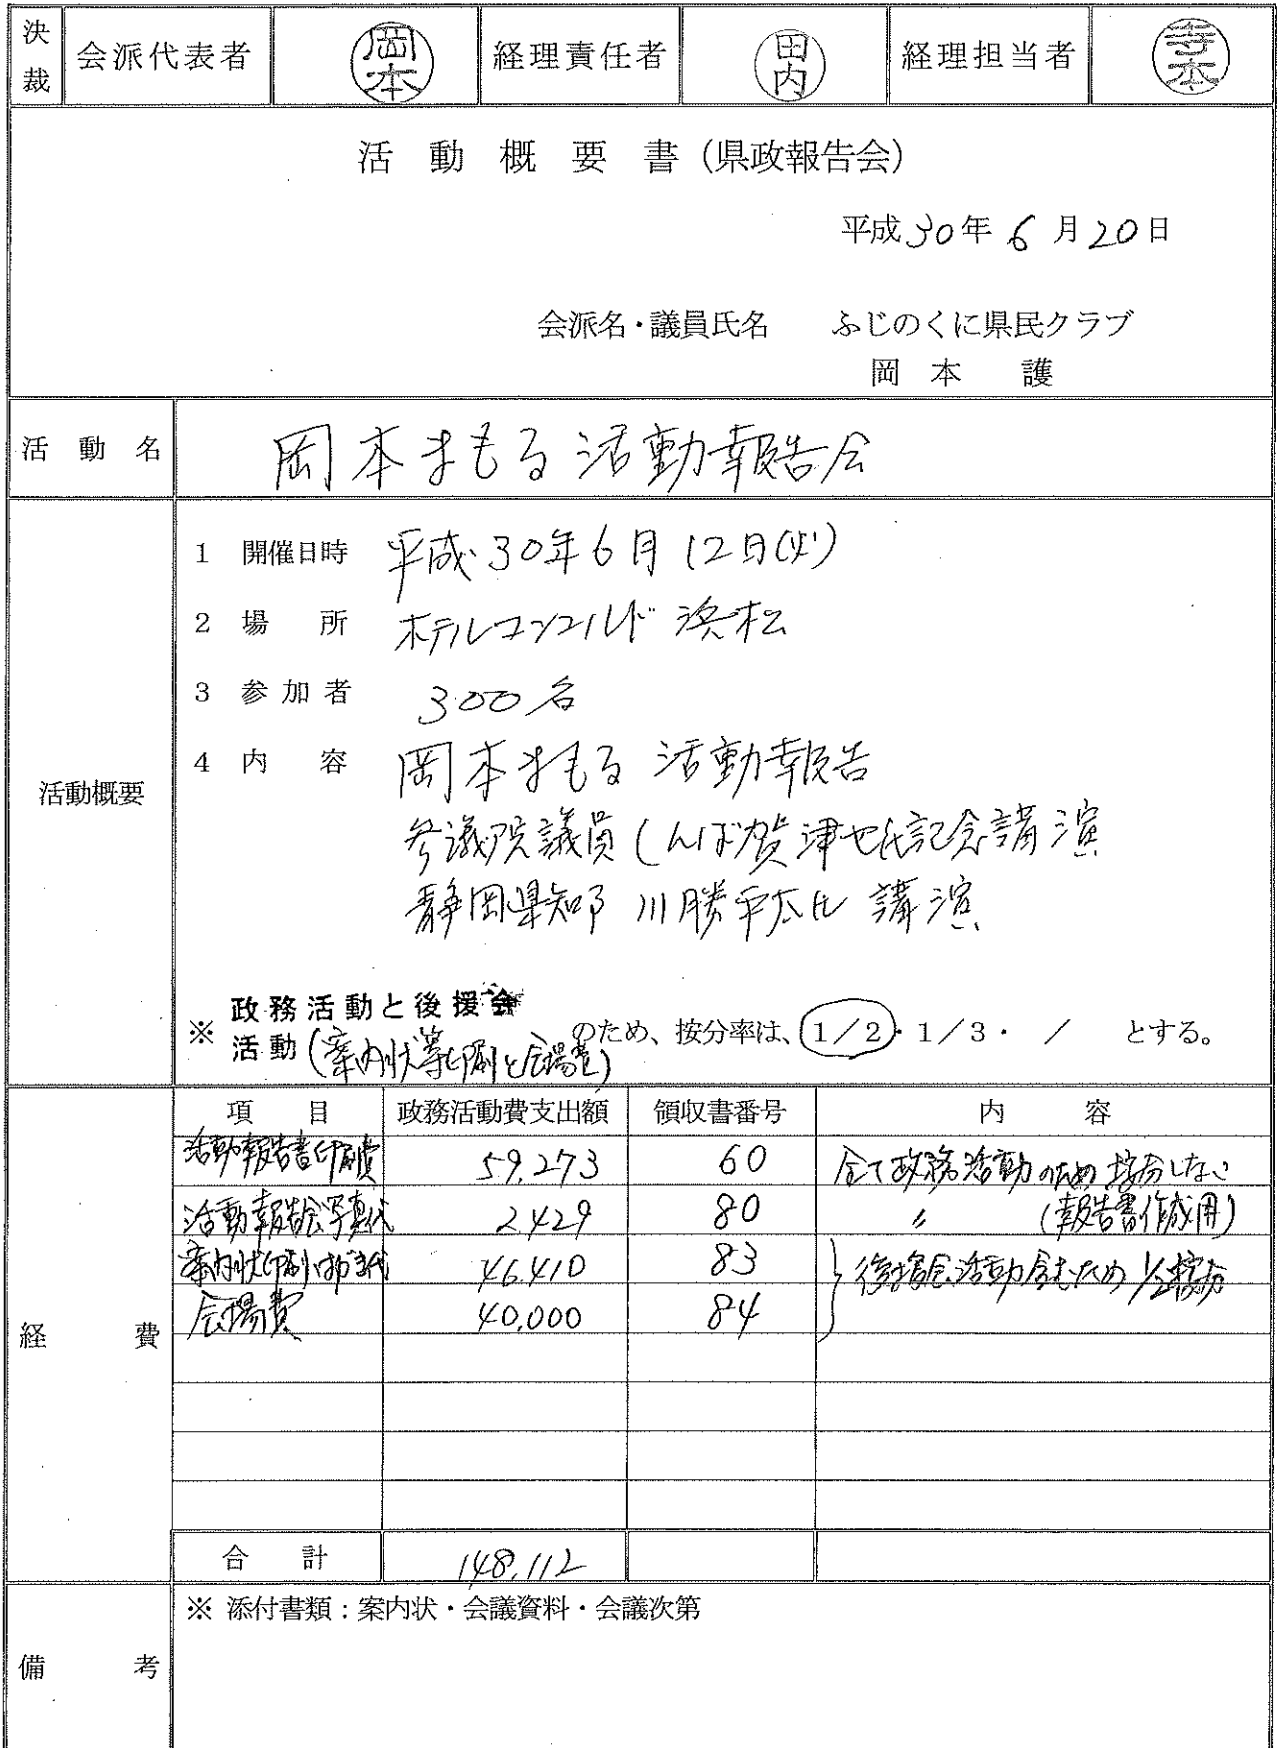 決裁 会派代表者 岡本 経理責任者 田内 経理担当者 寺本
活動概要書(県政報告会)
平成30年6月20日
会派名・議員氏名 ふじのくに県民クラブ
岡本 護
活動名 岡本まもる活動報告会
活動概要
1 開催日時 平成30年6月12日(火)
2 場所 ホテルコンコルド浜松
3 参加者 300名
4 内容 岡本まもる 活動報告
参議院議員しんば賀津也氏記念講演
静岡県知事 川勝平太氏 講演
※ 政務活動と後援会
活動(案内状等印刷と会場費)のため、按分率は、1/2・1/3・ / とする。
経費
項目 政務活動費支出額 領収書番号 内容
活動報告書印刷費 59,273 60 全て政務活動のため按分しない
活動報告会写真代 2,429 80 〃 (報告書作成用)
案内状印刷はがき代 46,410 83 後援会活動含むため1/2按分
会場費 40,000 84
合計 148,112
備考 ※ 添付書類:案内状・会議資料・会議次第